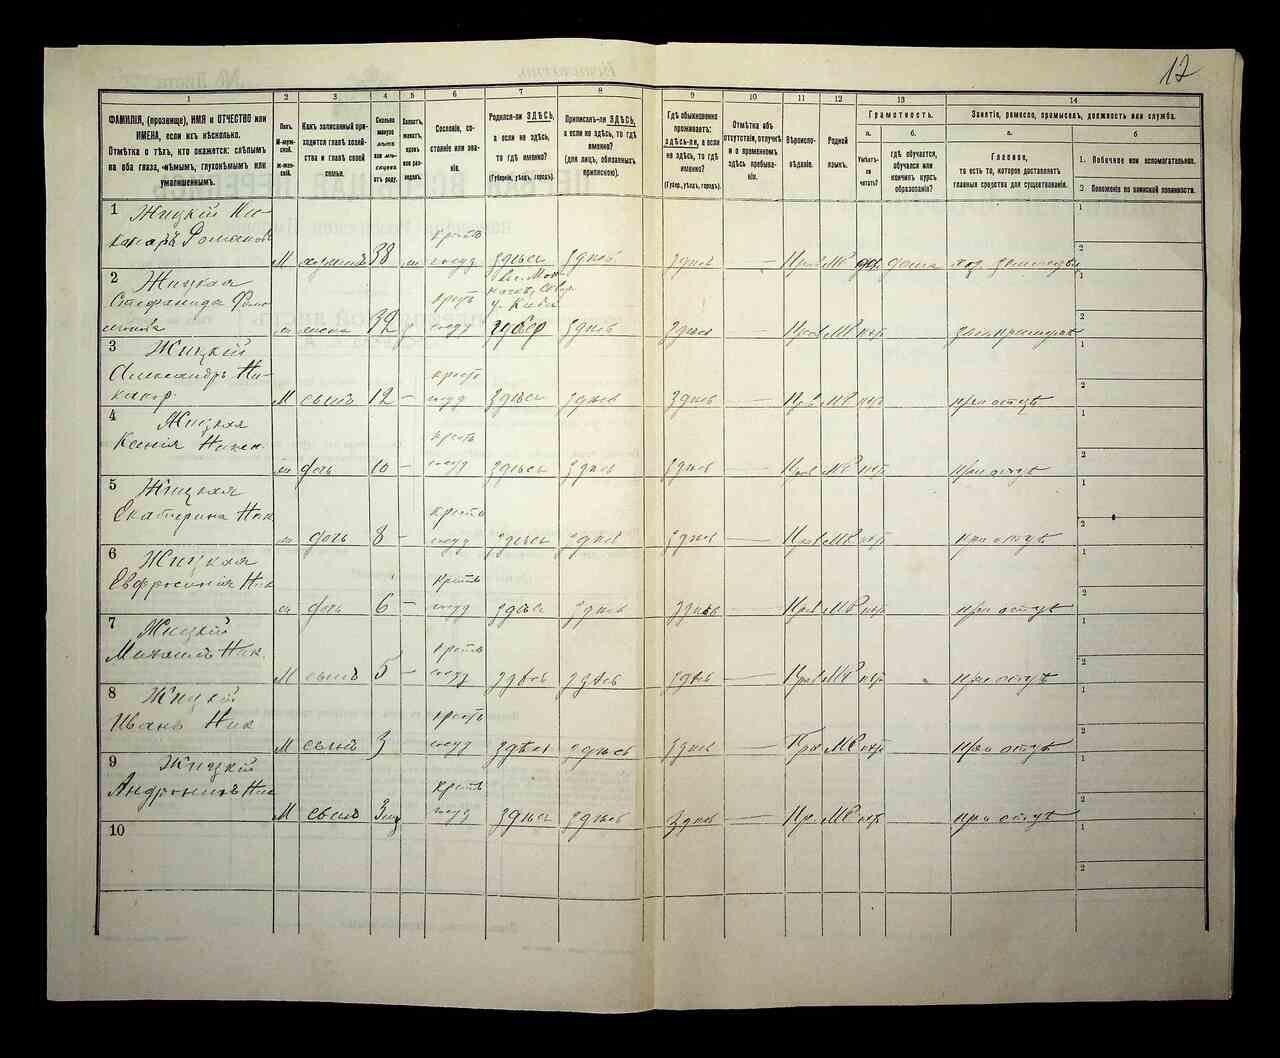 12
1
2
3
4
5
6
7
8
9
10
11
12
13
14
ФАМИЛІЯ, (прозвище), ИМЯ и ОТЧЕСТВО или
ИМЕНА, если ихъ нѣсколько.
Отмѣтка о тѣхъ, кто окажется: слѣпымъ
на оба глаза, нѣмымъ, глухонѣмымъ или
умалишеннымъ.
Полъ.
М-мужской.
Ж-женскій.
Какъ записанный приходится
главѣ хозяйства
и главѣ своей
семьи.
Сколько
минуло
лѣтъ
или мѣсяцевъ
отъ роду.
Холостъ,
женатъ,
вдовъ
или разведенъ.
Сословіе, состояніе
или званіе.
Родился-ли ЗДѢСЬ,
а если не здѣсь,
то гдѣ именно?
(Губернія, уѣздъ, городъ).
Приписанъ-ли ЗДѢСЬ,
а если не здѣсь, то гдѣ
именно?
(для лицъ, обязанныхъ
припискою).
Гдѣ обыкновенно
проживаетъ:
здѣсь-ли, а если
не здѣсь, то гдѣ
именно?
(Губер., уѣздъ, городъ).
Отмѣтка объ
отсутствіи, отлучкѣ
и о временномъ
здѣсь пребываніи.
Вѣроисповѣданіе.
Родной
языкъ.
Грамотность.
а.
Умѣетъ-ли
читать?
б.
гдѣ обучается,
обучался или
кончилъ курсъ
образованія?
Занятіе, ремесло, промыселъ, должность или служба.
а.
Главное,
то есть то, которое доставляетъ
главныя средства для существованія.
б
1. Побочное или вспомогательное.
2 Положеніе по воинской повинности.
1 Жицкій Ни-
каноръ Романовъ
М хозяинъ 38 крест. госуд здѣсь здѣсь здѣсь — Прав МР дома
2 Жицкая
Стефанида
жена 32 крест. госуд
у. Кіев.
губер здѣсь здѣсь — Прав МР нѣтъ
3 Жицкій
Александръ Ни-
канор.
М сынъ 12 — крест. госуд здѣсь здѣсь здѣсь — Прав МР нѣтъ при отцѣ
4 Жицкая
Ксенія Никан.
дочь 10 — крест. госуд здѣсь здѣсь здѣсь — Прав МР нѣтъ при отцѣ
5 Жицкая
Екатерина Ник
дочь 8 — крест. госуд здѣсь здѣсь здѣсь — Прав МР нѣтъ при отцѣ
6 Жицкая
Евфросинія Ник
дочь 6 — крест. госуд здѣсь здѣсь здѣсь — Прав МР нѣтъ при отцѣ
7 Жицкій
Михаилъ Ник.
М сынъ 5 — крест. госуд здѣсь здѣсь здѣсь — Прав МР нѣтъ при отцѣ
8 Жицкій
Иванъ Ник
М сынъ 3 крест. госуд здѣсь здѣсь здѣсь — Прав МР нѣтъ при отцѣ
9 Жицкій
Андроникъ Ник
М сынъ 3 мц крест. госуд здѣсь здѣсь здѣсь — Пр. МР нѣтъ при отцѣ
10